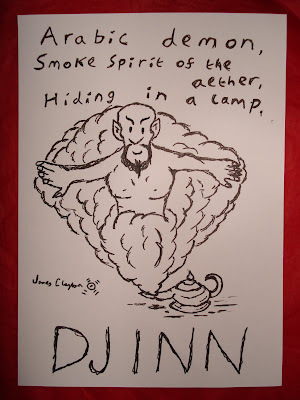 Arabic demon,
Smoke Spirit of the
aether,
Hiding in a Lamp.
James Clayton
DJINN